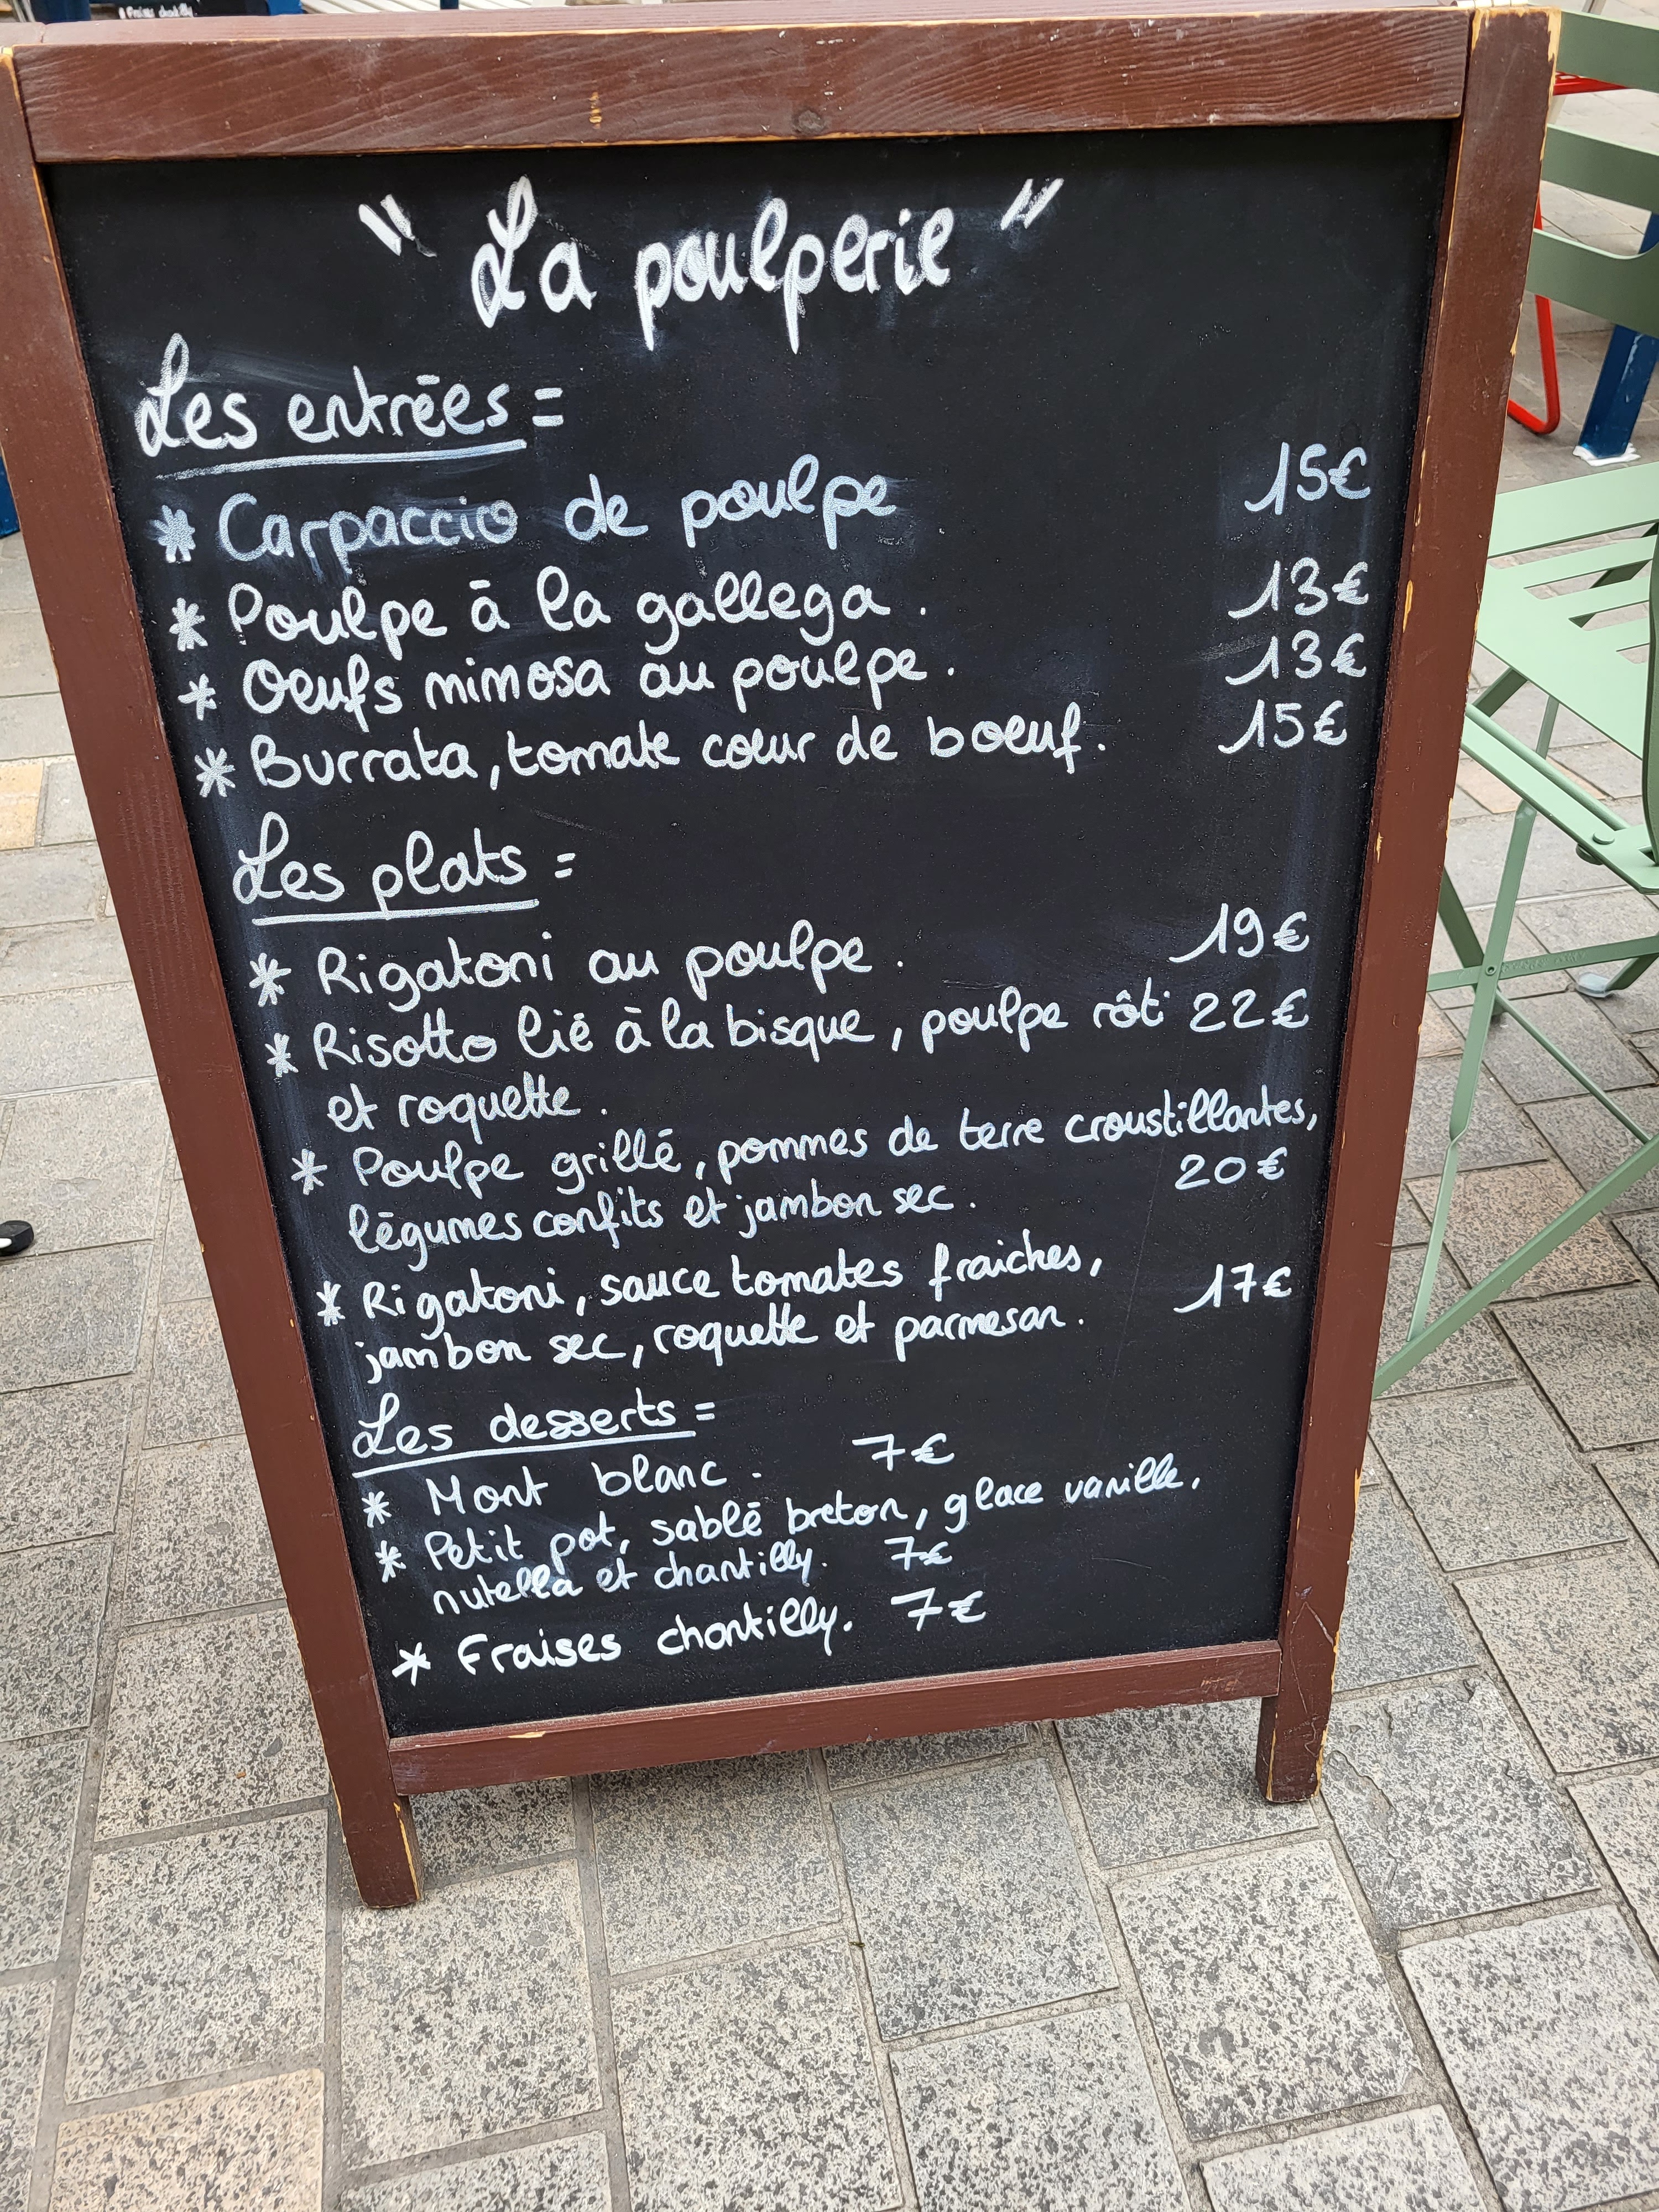 Fraises chantilly.
" La poulperie "
Les entrées =
* Carpaccio de poulpe 15€
* Poulpe à la gallega. 13€
* Oeufs mimosa au poulpe. 13€
* Burrata, tomate cœur de boeuf. 15€
Les plats =
* Rigatoni au poulpe. 19€
* Risotto lié à la bisque, poulpe rôti 22€
et roquette.
* Poulpe grillé, pommes de terre croustillantes,
légumes confits et jambon sec. 20€
* Rigatoni, sauce tomates fraiches,
jambon sec, roquette et parmesan. 17€
Les desserts =
* Mont blanc. 7€
* Petit pot, sablé breton, glace vanille,
nutella et chantilly. 7€
* Fraises chantilly. 7€